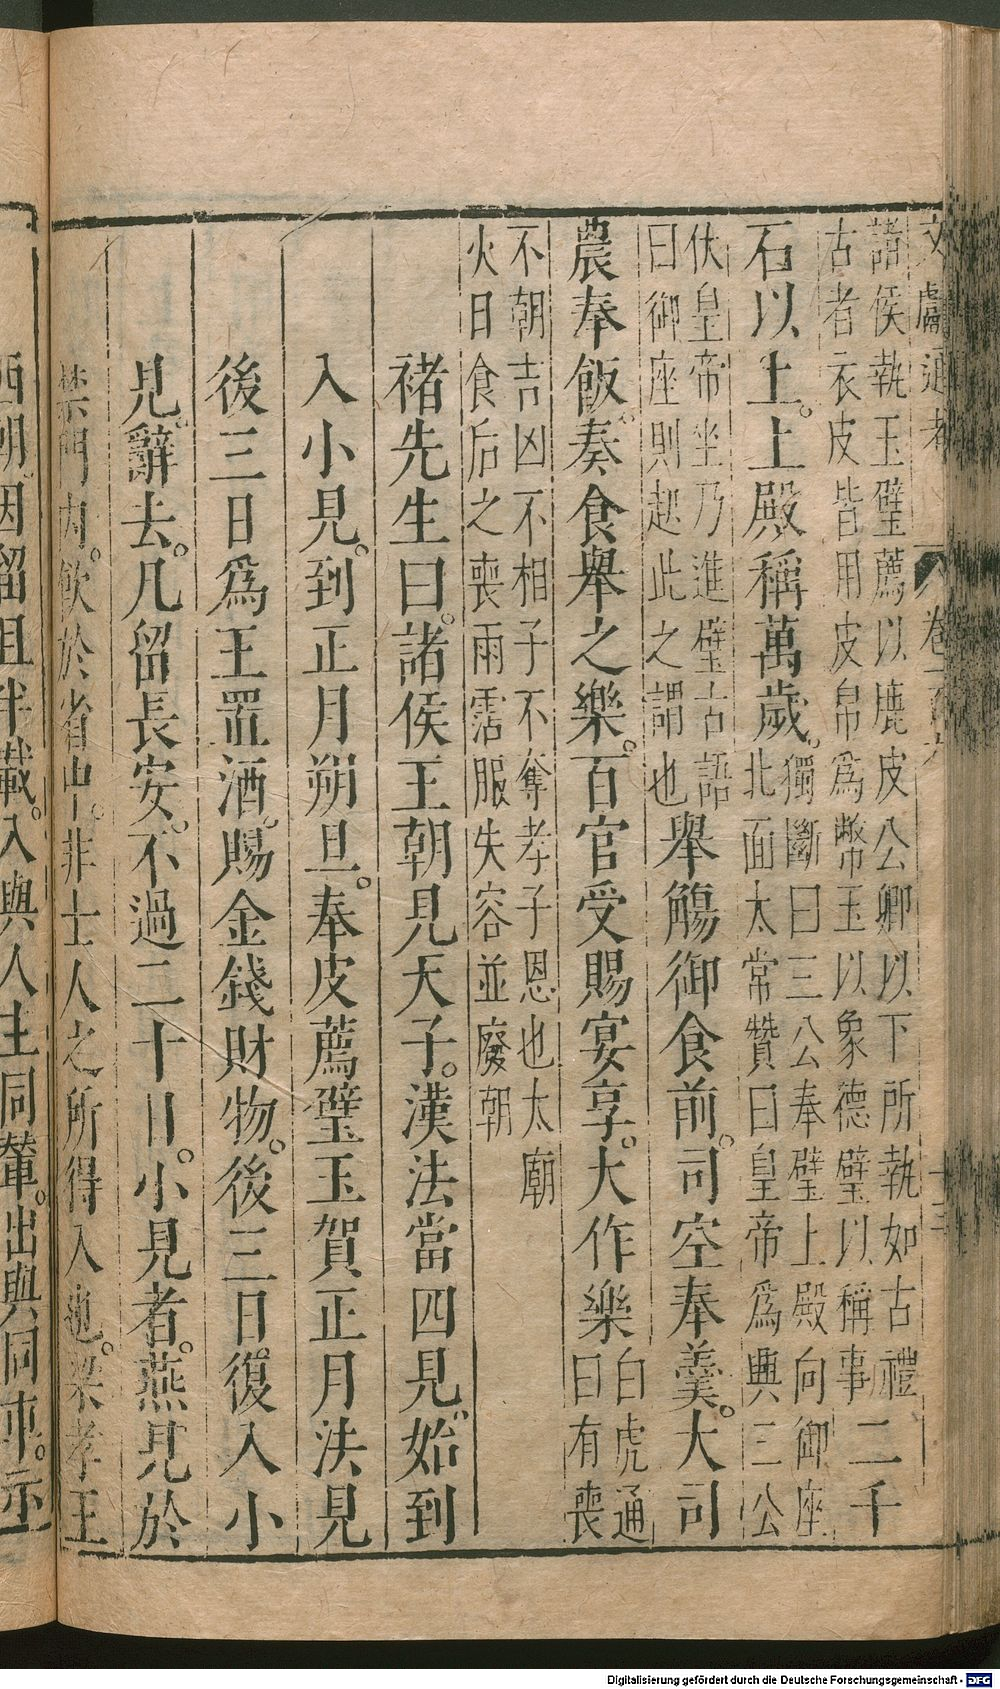 文獻通考 卷一百
諸侯執玉璧薦以鹿皮公卿以下所執如古禮
古者衣皮皆用皮帛為幣玉以象德璧以稱事 二千
石以上。上殿稱萬歲。獨斷曰三公奉璧上殿向御座
北面太常贊曰皇帝為興三公
伏皇帝坐乃進璧古語
曰御座則起此之謂也 舉觴御食前。司空奉羹。大司
農奉飯。奏食舉之樂。百官受賜宴享。大作樂 白虎通
曰有喪
不朝吉凶不相子不奪孝子恩也太廟
火日食后之喪雨霑服失容並廢朝
褚先生曰。諸侯王朝見天子。漢法當四見。始到
入小見。到正月朔旦。奉皮薦璧玉賀正月法見
後三日為王置酒。賜金錢財物。後三日。復入小
見。辭去。凡留長安。不過二十日。小見者。燕見於
禁門內。飲於省中。非士人之所得入也。梁孝王
西朝。因留且半歲。入與人主同輦。出與同車。示
Digitalisierung gefördert durch die Deutsche Forschungsgemeinschaft - DFG